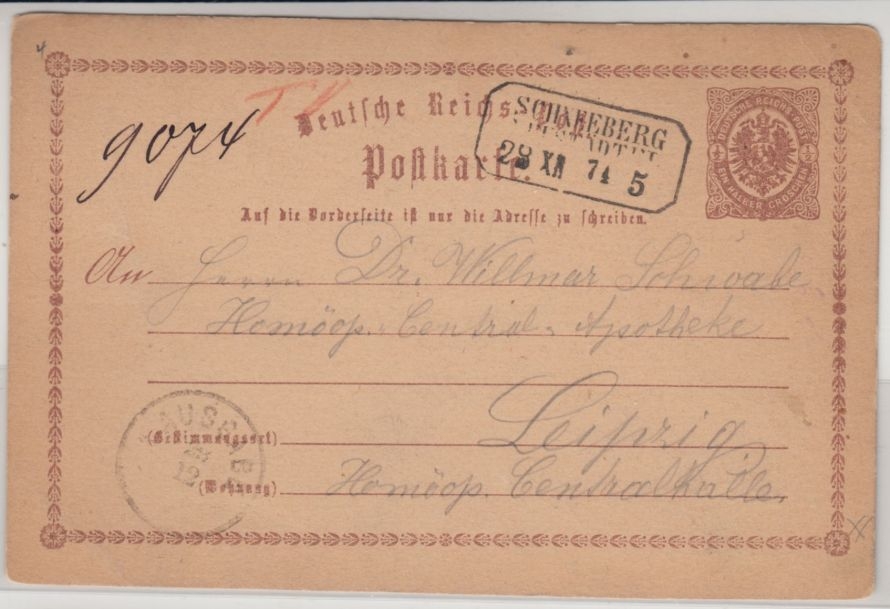 9074
Deutsche Reichs-Post
Postkarte.
SCHNEEBERG
28 XII 74 5
DEUTSCHE REICHS-POST
½ ½
EIN HALBER GROSCHEN
Auf die Vorderseite ist nur die Adresse zu schreiben.
An Herrn Dr. Willmar Schwabe
Homöop. Central-Apotheke
Leipzig
(Bestimmungsort)
(Wohnung) Homöop. Centralhalle.
AUSGAB
12